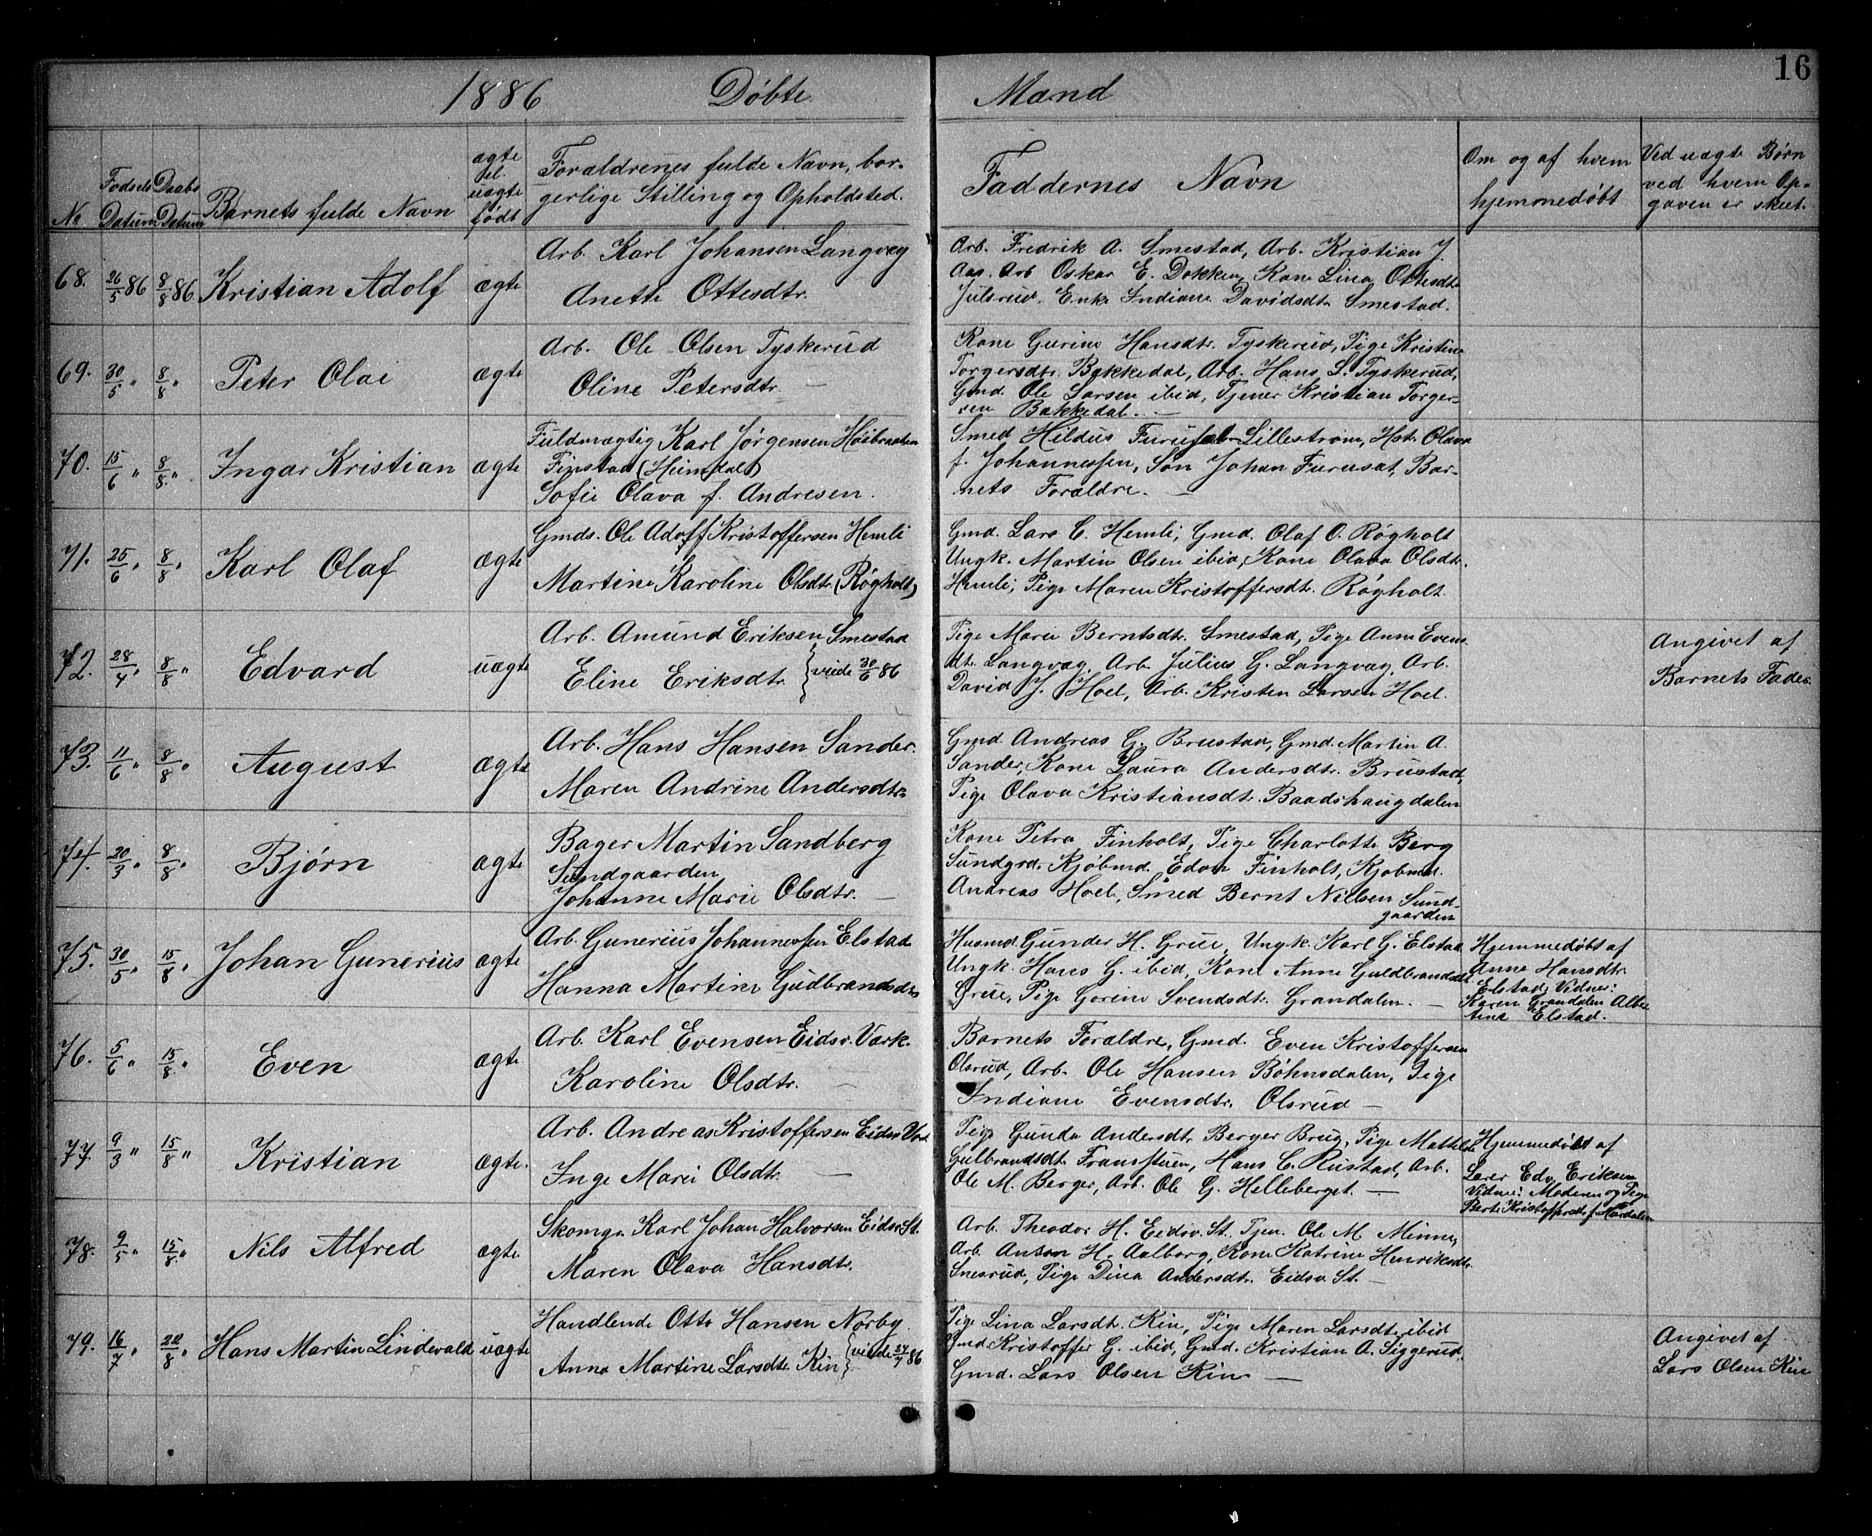 16
1886 Døbte Mænd
No
Fødsels Datum
Daabs Datum
Barnets fulde Navn
ægte el. uægte født
Forældrenes fulde Navn, bor-
gerlige Stilling og Opholdsted.
Faddernes Navn
Om og af hvem
hjemmedøbt
Ved uægte Børn
ved hvem Op-
gaven er skeet.
68. 26/5 86 8/8 86. Kristian Adolf ægte
Arb. Karl Johansen Langvæg
Anette Ottesdtr.
Arb. Fredrik A. Smestad, Arb. Kristian J.
Aas. Arb Oskar E. Dokken, Kone Lina Ottesdtr
Julsrud. Enke Indiane Davidsdtr Smestad.
69. 30/5 " 8/8 " Peter Olai ægte
Arb. Ole Olsen Tyskerud
Oline Petersdtr. —
Kone Gurine Hansdtr. Tyskerud, Pige Kristine
Torgersdtr. Bakkedal, Arb. Hans L. Tyskerud,
Gmd. Ole Larsen ibid, Tjener Kristian Torger-
sen Bakkedal. —
70. 15/6 " 8/8 " Ingar Kristian ægte
Fuldmægtig Karl Jørgensen Høibraaten
Finstad (Heimdal)
Sofie Olava f. Andresen.
Smed Hildus Furusat Lillestrøm, Hstr Olava
f. Johannessen, Søn Johan Furusat, Bar-
nets Forældre. —
71. 25/6 " 8/8 " Karl Olaf ægte
Gmds. Ole Adolf Kristoffersen Hemli
Martine Karoline Olsdtr (Røgholt)
Gmd. Lars C. Hemli, Gmd. Olaf O. Røgholt
Ungk. Martin Olsen ibid, Kone Olava Olsdtr.
Hemli, Pige Maren Kristoffersdtr. Røgholt
72. 28/4 " 8/8 " Edvard uægte
Arb. Amund Eriksen Smestad
Eline Eriksdtr. } viede 30/6 86
Pige Marie Berntsdtr. Smestad, Pige Anne Evens-
dtr. Langvæg, Arb. Julius G. Langvæg, Arb.
David J. Hoel, Arb. Kristen Larsen Hoel.
Angivet af
Barnets Fader
73. 11/6 " 8/8 " August ægte
Arb. Hans Hansen Sander.
Maren Andrine Andersdtr
Gmd. Andreas G. Brustad, Gmd. Martin A.
Sander, Kone Laura Andersdtr. Brustad,
Pige Olava Kristiansdtr. Baadshaugdalen
74. 20/3 " 8/8 " Bjørn ægte
Bager Martin Sandberg
Sundgaarden
Johanne Marie Olsdtr. —
Kone Petra Finholt, Pige Charlotte Berg
Sundgrd. Kjøbmd. Edon Finholt, Kjøbmd.
Andreas Hoel, Smed Bernt Nilsen Sund-
gaarden
75. 30/5 " 15/8 " Johan Gunerius ægte
Arb. Gunerius Johannessen Elstad
Hanna Martine Gudbrandsdtr
Husmd. Gunder H. Grue, Ungk. Karl G. Elstad
Ungk. Hans G. ibid, Kone Anne Guldbrandsdtr
Grue, Pige Gorine Svendsdtr. Grandalen. —
Hjemmedøbt af
Anne Hansdtr.
Elstad, Vidner:
Karen Grandalen Albe
tine Elstad.
76. 5/6 " 15/8 " Even ægte
Arb. Karl Evensen Eidsv. Værk.
Karoline Olsdtr. —
Barnets Forældre, Gmd. Even Kristoffersen
Olsrud, Arb. Ole Hansen Bøhnsdalen, Pige
Indiane Evensdtr. Olsrud —
77. 9/3 " 15/8 " Kristian ægte.
Arb. Andreas Kristoffersen Eidsv Værk
Inge Marie Olsdtr. —
Pige Gunda Andersdtr. Berger Brug, Pige Matilde
Gulbrandsdtr. Fransstuen, Hans C. Rustad, Arb.
Ole M. Berger, Arb. Ole G. Helleberget. —
Hjemmedøbt af
Lærer Edv. Eriksen
Vidner: Moderen og Pige
Berte Kristoffersdtr.
78. 9/5 " 15/8 " Nils Alfred ægte
Skomgr. Karl Johan Halvorsen Eidsv. St.
Maren Olava Hansdtr.
Arb. Theodor H. Eidsv. St. Tjen. Ole M. Minne,
Arb. Anton H. Aalborg, Kone Katrine Henriksdtr
Snesrud, Pige Dina Andersdtr. Eidsv. St. —
79. 16/7 " 22/8 " Hans Martin Lindevald uægte
Handlende Otto Hansen Nørby.
Anna Martine Larsdtr Kin } viede 27/7 86
Pige Lina Larsdtr. Kin, Pige Maren Larsdtr. ibid
Gmd Kristoffer G. ibid, Gmd. Kristian A. Siggerud,
Gmd. Lars Olsen Kin —
Angivet af
Lars Olsen Kin